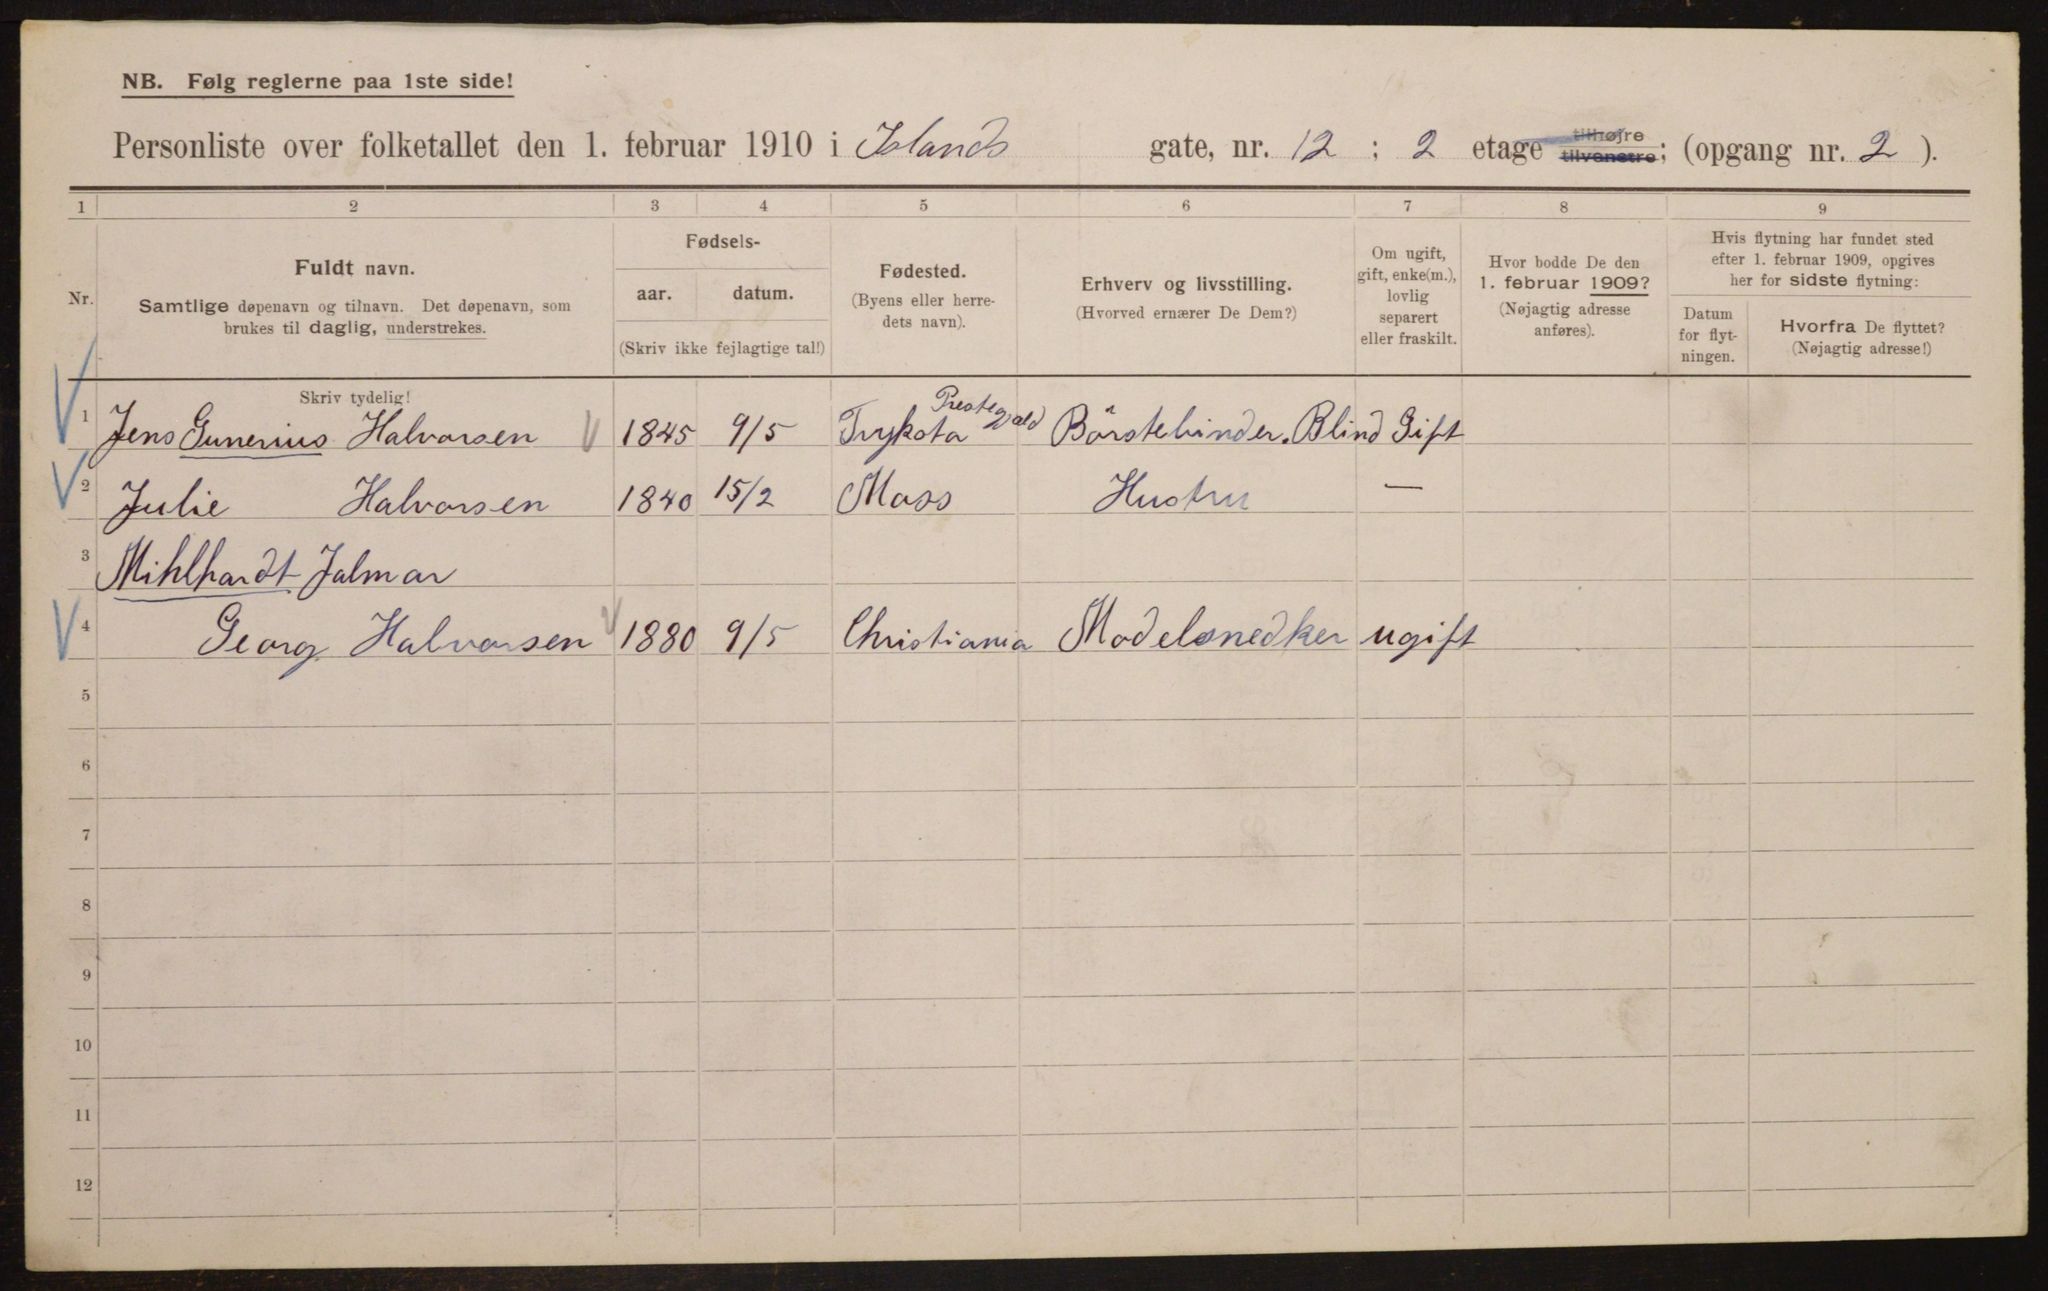 NB. Følg reglerne paa 1ste side!
Personliste over folketallet den 1. februar 1910 i Islands gate, nr. 12 ; 2 etage tilhøjre tilvenstre; (opgang nr. 2 ).
1 2 3 4 5 6 7 8 9
Nr.
Fuldt navn.
Samtlige døpenavn og tilnavn. Det døpenavn, som
brukes til daglig, understrekes.
Fødsels-
aar. datum.
(Skriv ikke fejlagtige tal!)
Fødested.
(Byens eller herre-
dets navn).
Erhverv og livsstilling.
(Hvorved ernærer De Dem?)
Om ugift,
gift, enke(m.),
lovlig
separert
eller fraskilt.
Hvor bodde De den
1. februar 1909?
(Nøjagtig adresse
anføres).
Hvis flytning har fundet sted
efter 1. februar 1909, opgives
her for sidste flytning:
Datum
for flyt-
ningen.
Hvorfra De flyttet?
(Nøjagtig adresse!)
Skriv tydelig!
1 Jens Gunerius Halvorsen 1845 9/5 Tryksta Børstebinder. Blind Gift
2 Julie Halvorsen 1840 15/2 Moss Hustru —
3 Mihlhardt Jalmar
4 Georg Halvorsen 1880 9/5 Christiania Modelsnedker ugift
5
6
7
8
9
10
11
12